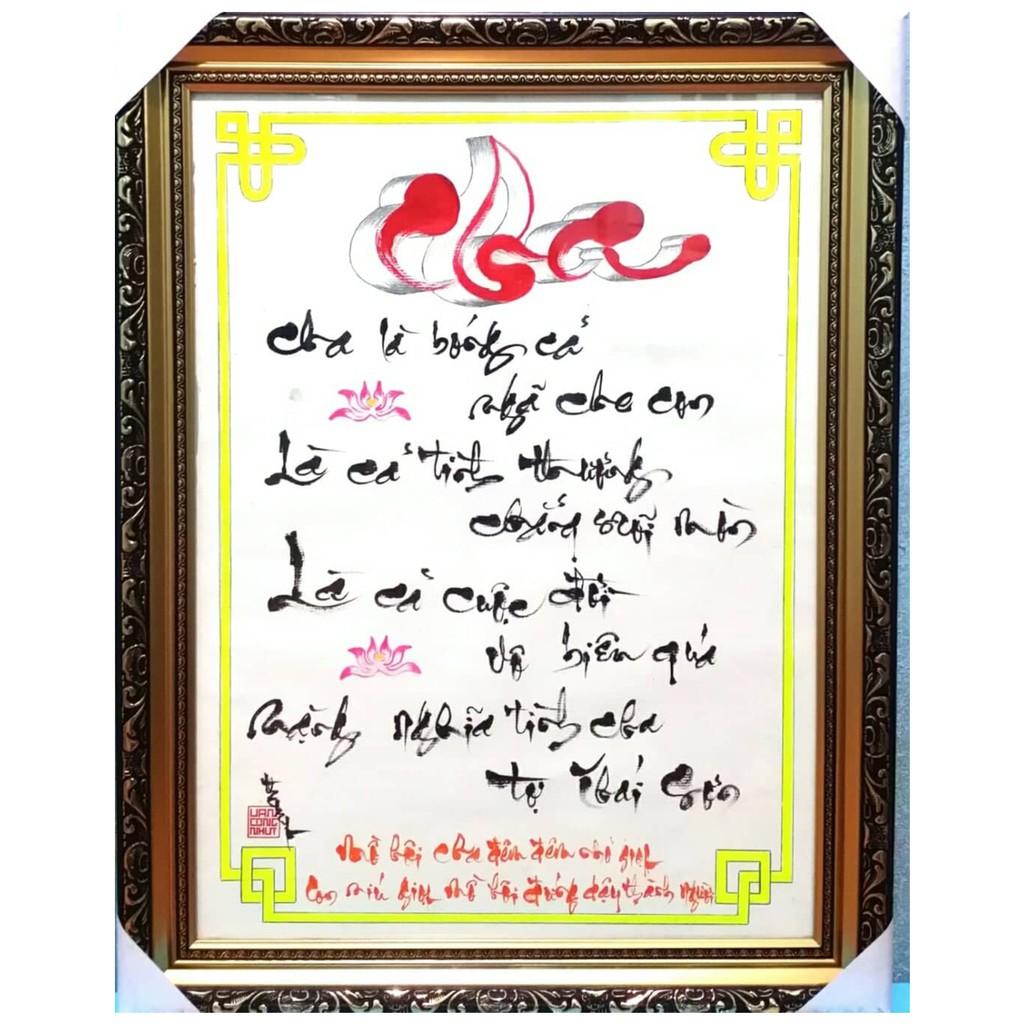 Cha
Cha là bóng cả
ngã che con
Là cả tình thương
chẳng xói mòn
Là cả cuộc đời
vô biên quá
nặng nghĩa tình cha
tợ Thái Sơn
VAN
CONG
NHUT
mồ hôi cha đêm đêm nhỏ giọt
Con níu giọt mồ hôi đứng dậy thành người